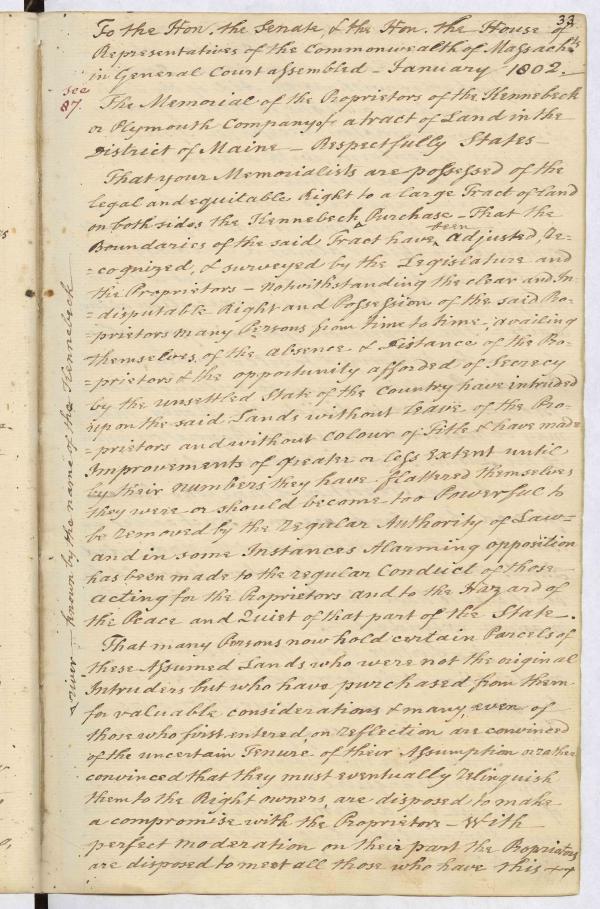 33
To the Hon. the Senate, & the Hon. the House of
Representatives of the Commonwealth of Massachts
in General Court assembled - January 1802. -
see
87.
The Memorial of the Proprietors of the Kennebeck
or Plymouth Company of a tract of Land in the
District of Maine - Respectfully States -
That your Memorialists are possessed of the
legal and equitable Right to a large Tract of Land
on both sides the Kennebeck ^ Purchase - That the
Boundaries of the said Tract have been adjusted, Re-
=cognized, & surveyed by the Legislature and
the Proprietors - Notwithstanding the clear and In-
=disputable Right and Possession of the said Pro-
=prietors many Persons from time to time, availing
themselves of the absence & Distance of the Pro-
=prietors & the opportunity afforded of Secrecy
by the unsettled State of the Country have intruded
upon the said Lands without Leave of the Pro-
=prietors and without Colour of Title & have made
Improvements of greater or less Extent until
by their numbers they have flattered themselves
they were or should become too Powerful to
be removed by the regular Authority of Law=
and in some Instances Alarming opposition
has been made to the regular Conduct of those
acting for the Proprietors and to the Hazard of
the Peace and Quiet of that part of the State -
That many Persons now hold certain Parcels of
these Assumed Lands who were not the original
Intruders but who have purchased from them
for valuable considerations & many, even of
those who first entered, on reflection are convinced
of the uncertain Tenure of their Assumption or rather
convinced that they must eventually relinquish
them to the Right owners, are disposed to make
a compromise with the Proprietors - With
perfect moderation on their part the Proprietors
are disposed to meet all those who have this
^ river - known by the name of the Kennebeck